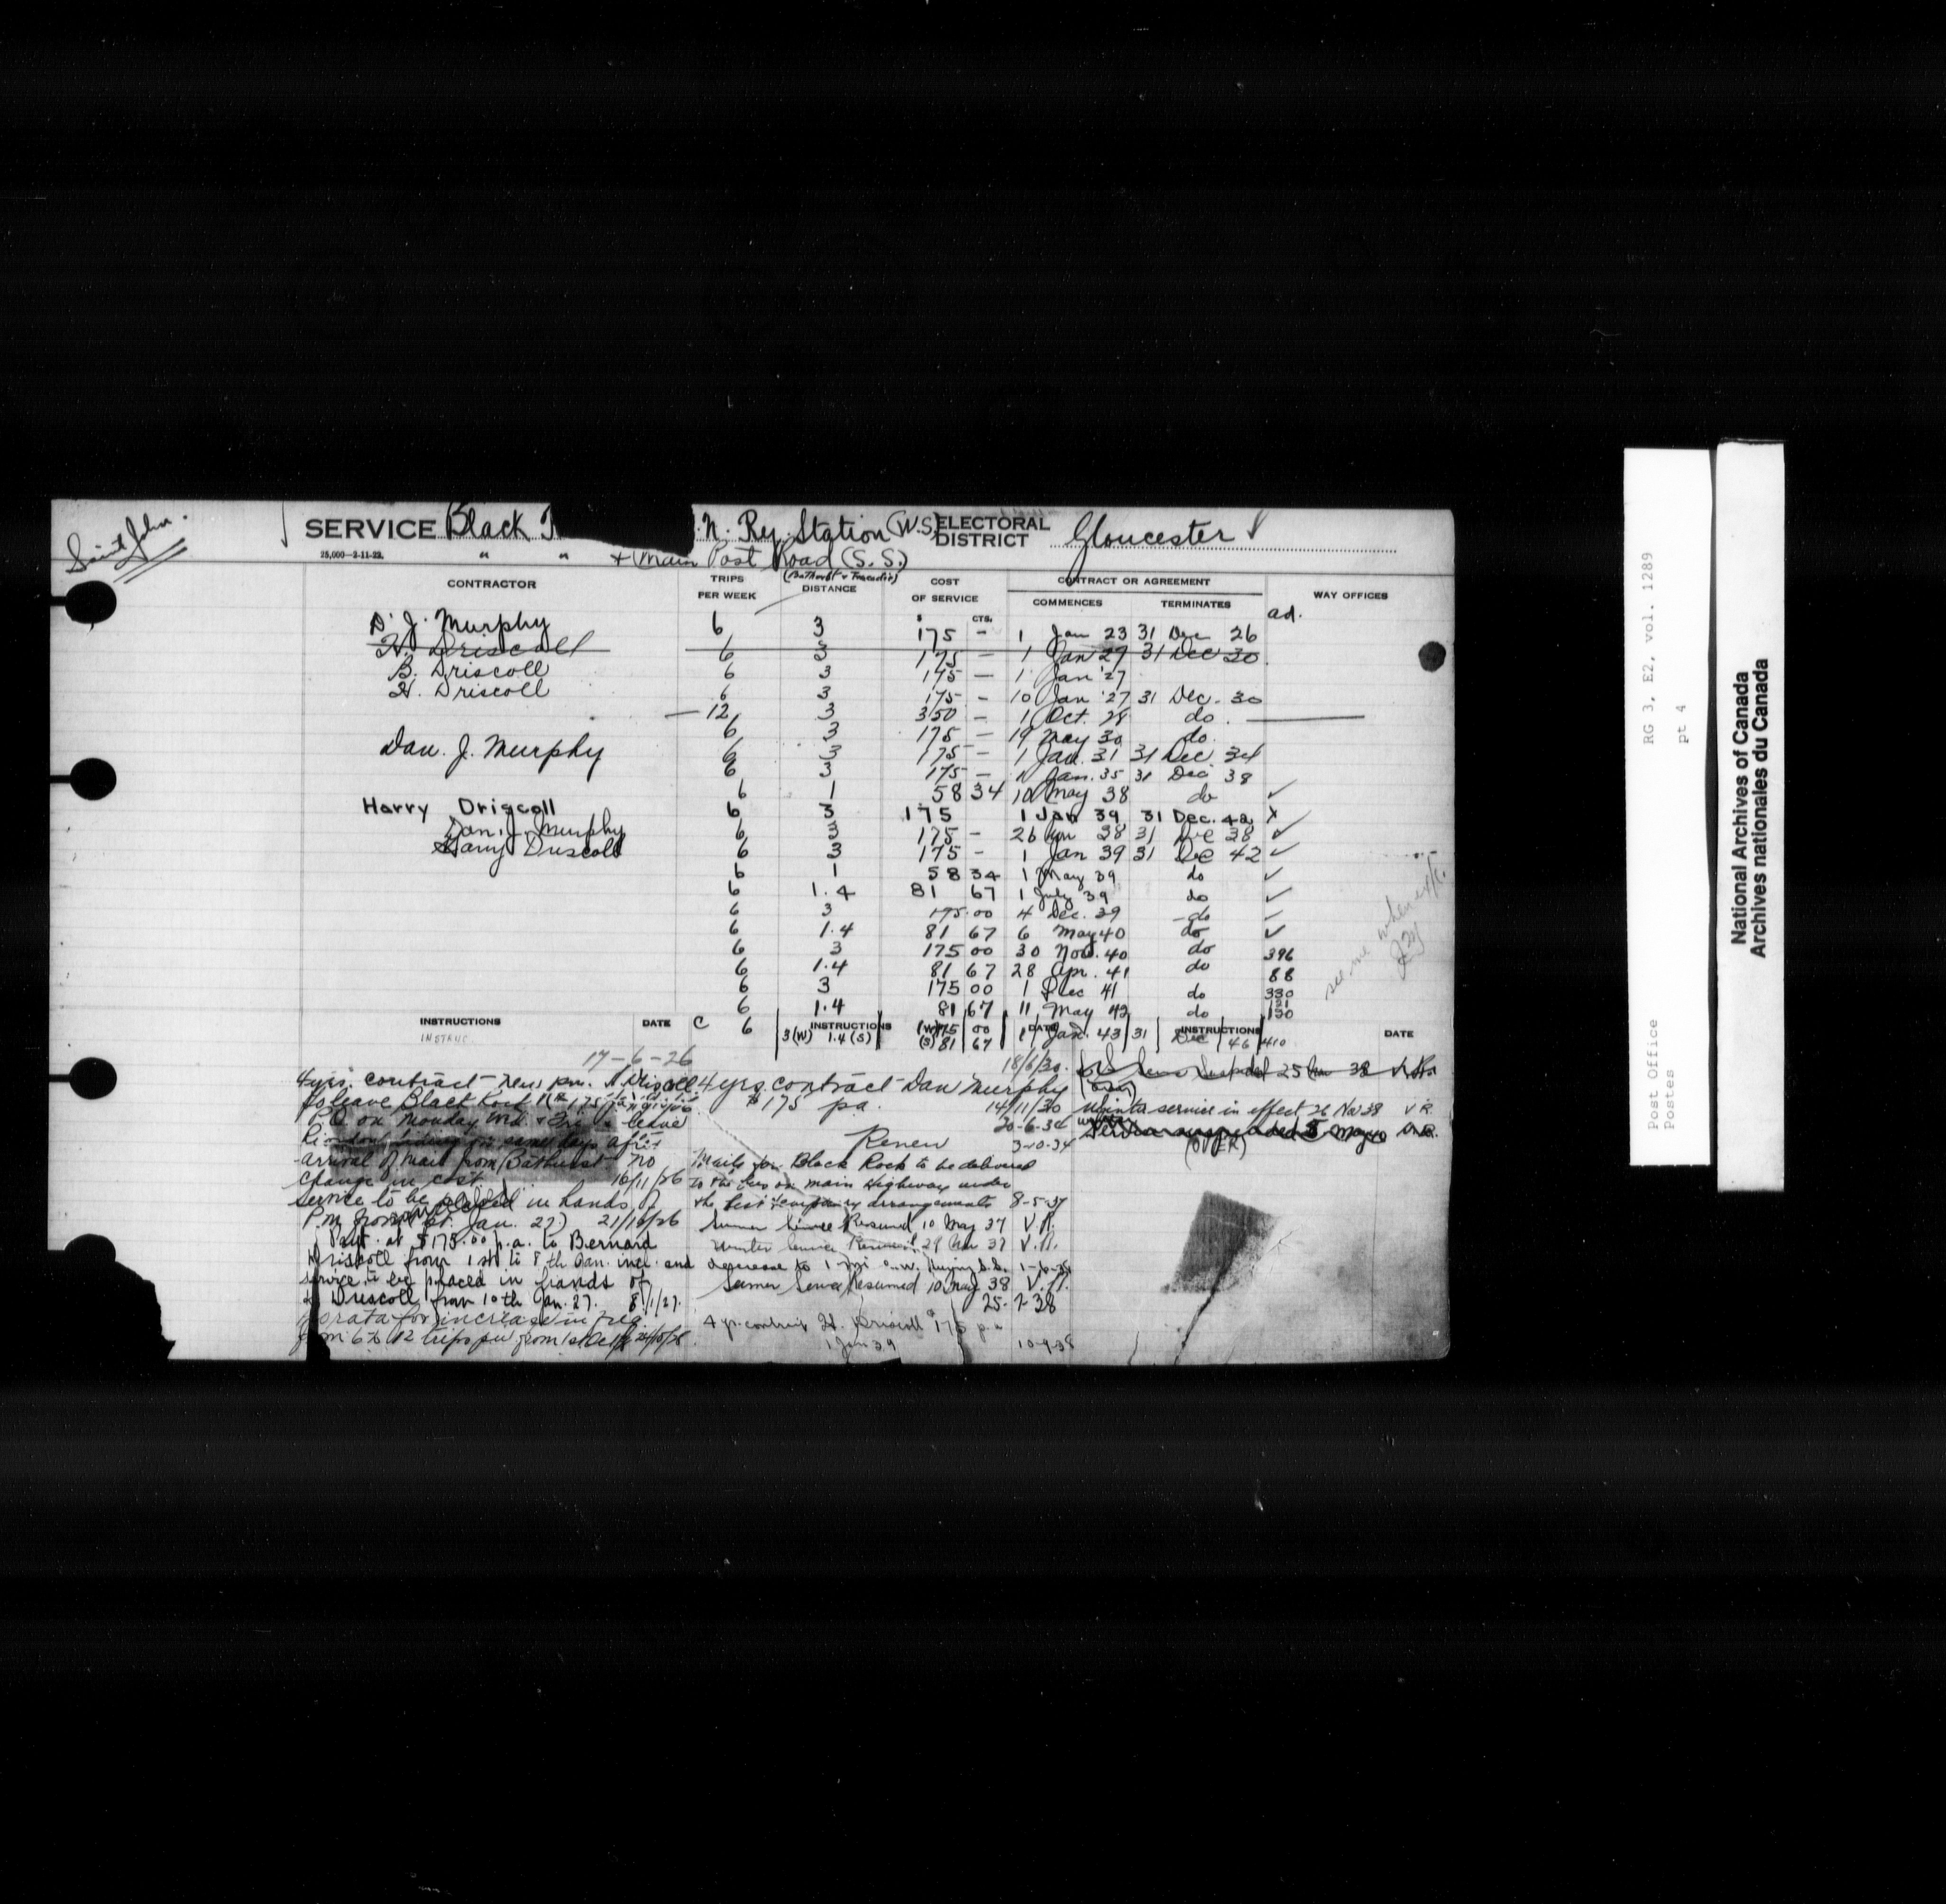 Saint John.
SERVICE Black N. Ry. Station (W.S) ELECTORAL DISTRICT Gloucester
25,000—2-11-22. " " + Main Post Road (S.S.)
(Bathurst & Tracadie)
CONTRACTOR TRIPS PER WEEK DISTANCE COST OF SERVICE CONTRACT OR AGREEMENT WAY OFFICES
$ CTS. COMMENCES TERMINATES
ad.
D. J. Murphy 6 3 175 - 1 Jan 23 31 Dec 26
H. Driscoll 6 3 175 - 1 Jan 27 31 Dec 30
B. Driscoll 6 3 175 - 1 Jan '27
H. Driscoll 6 3 175 - 10 Jan '27 31 Dec. 30
12 3 350 - 1 Oct. 28 do.
6 3 175 - 19 May 30 do.
Dan. J. Murphy 6 3 175 - 1 Jan. 31 31 Dec. 34
6 3 175 - 1 Jan. 35 31 Dec. 38
6 1 58 34 10 May 38 do ✓
Harry Driscoll 6 3 175 1 Jan 39 31 Dec. 42 x
Dan. J. Murphy 6 3 175 - 26 38 31 Dec 38 ✓
Harry Driscoll 6 3 175 - 1 Jan 39 31 Dec 42 ✓
6 1 58 34 1 May 39 do ✓
6 1.4 81 67 1 July 39 do ✓
6 3 175.00 4 Dec. 39 do ✓
6 1.4 81 67 6 May 40 do ✓
6 3 175 00 30 Nov. 40 do 396
6 1.4 81 67 28 Apr. 41 do 88
6 3 175 00 1 Dec 41 do 330
6 1.4 81 67 11 May 42 do 130
see me when
INSTRUCTIONS DATE C 6 3 (W) 1.4 (S) INSTRUCTIONS (W) 175 00 (S) 81 67 DATE 1 Jan. 43 31 Dec 46 INSTRUCTIONS 410 DATE
17-6-26
4 yrs. contract
to leave Black Rock
P.O. on Monday Wed. & Fri. & leave
same days after
arrival of mail from Bathurst no
change in cost 16/11/26
Service to be placed in hands of
P.M. from 1st. Jan. 27) 21/12/26
Pay't at $175.00 p.a. to Bernard
Driscoll from 1st to 8th Jan. incl. and
service to be placed in hands of
H Driscoll from 10th Jan. 27. 8/1/27.
pro rata for increase in freq.
from 6 to 12 trips pw from 1st Oct
18/6/30.
4 yrs. contract Dan Murphy
$175 pa. 14/11/30
20-6-34
Renew 3-10-34
Mails for Black Rock to be delivered
to the on main Highway under
the best temporary arrangements 8-5-37
Summer Service Resumed 10 May 37 V.R.
Winter Service Resumed 29 37 V.R.
decrease to 1 during S.S.
Summer Service Resumed 10 May 38 V.R.
25-7-38
4 yr. contract H. Driscoll $175 p.a.
1 Jan 39 10-9-38
25 38
Winter service in effect 26 Nov 38 V R.
Service suspended 5 May 40
(OVER)
National Archives of Canada
Archives nationales du Canada
RG 3, E2, vol. 1289
pt 4
Post Office
Postes